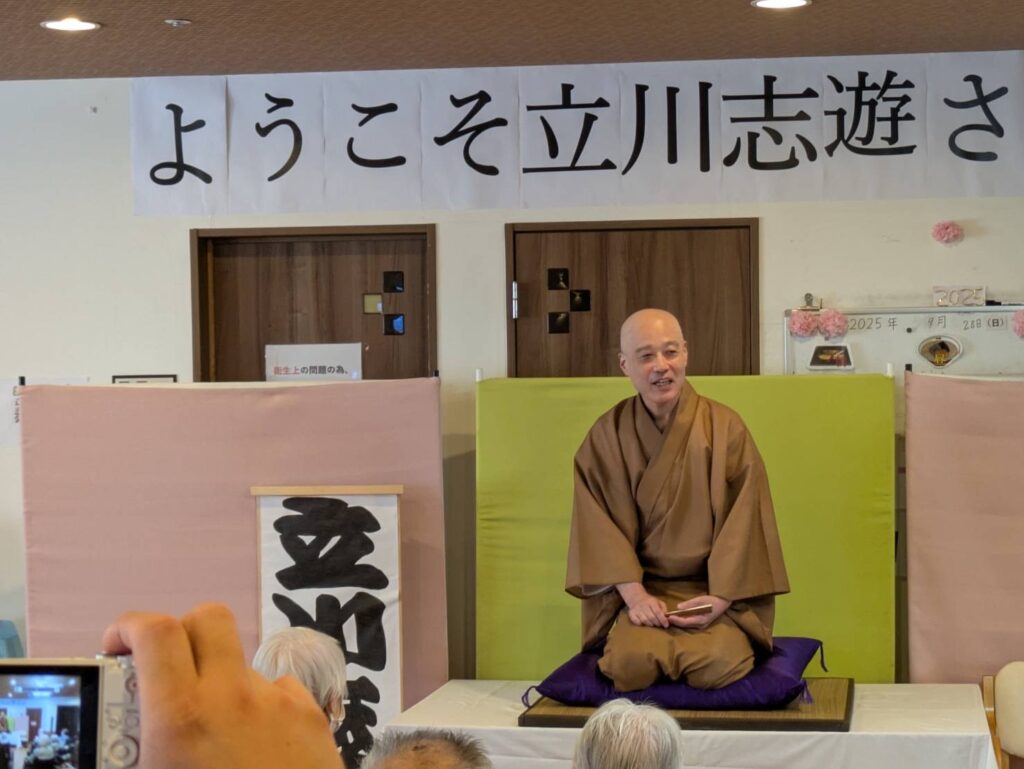 ようこそ立川志遊さ
2025
2025年 9月 28日(日)
衛生上の問題の為、
立
川